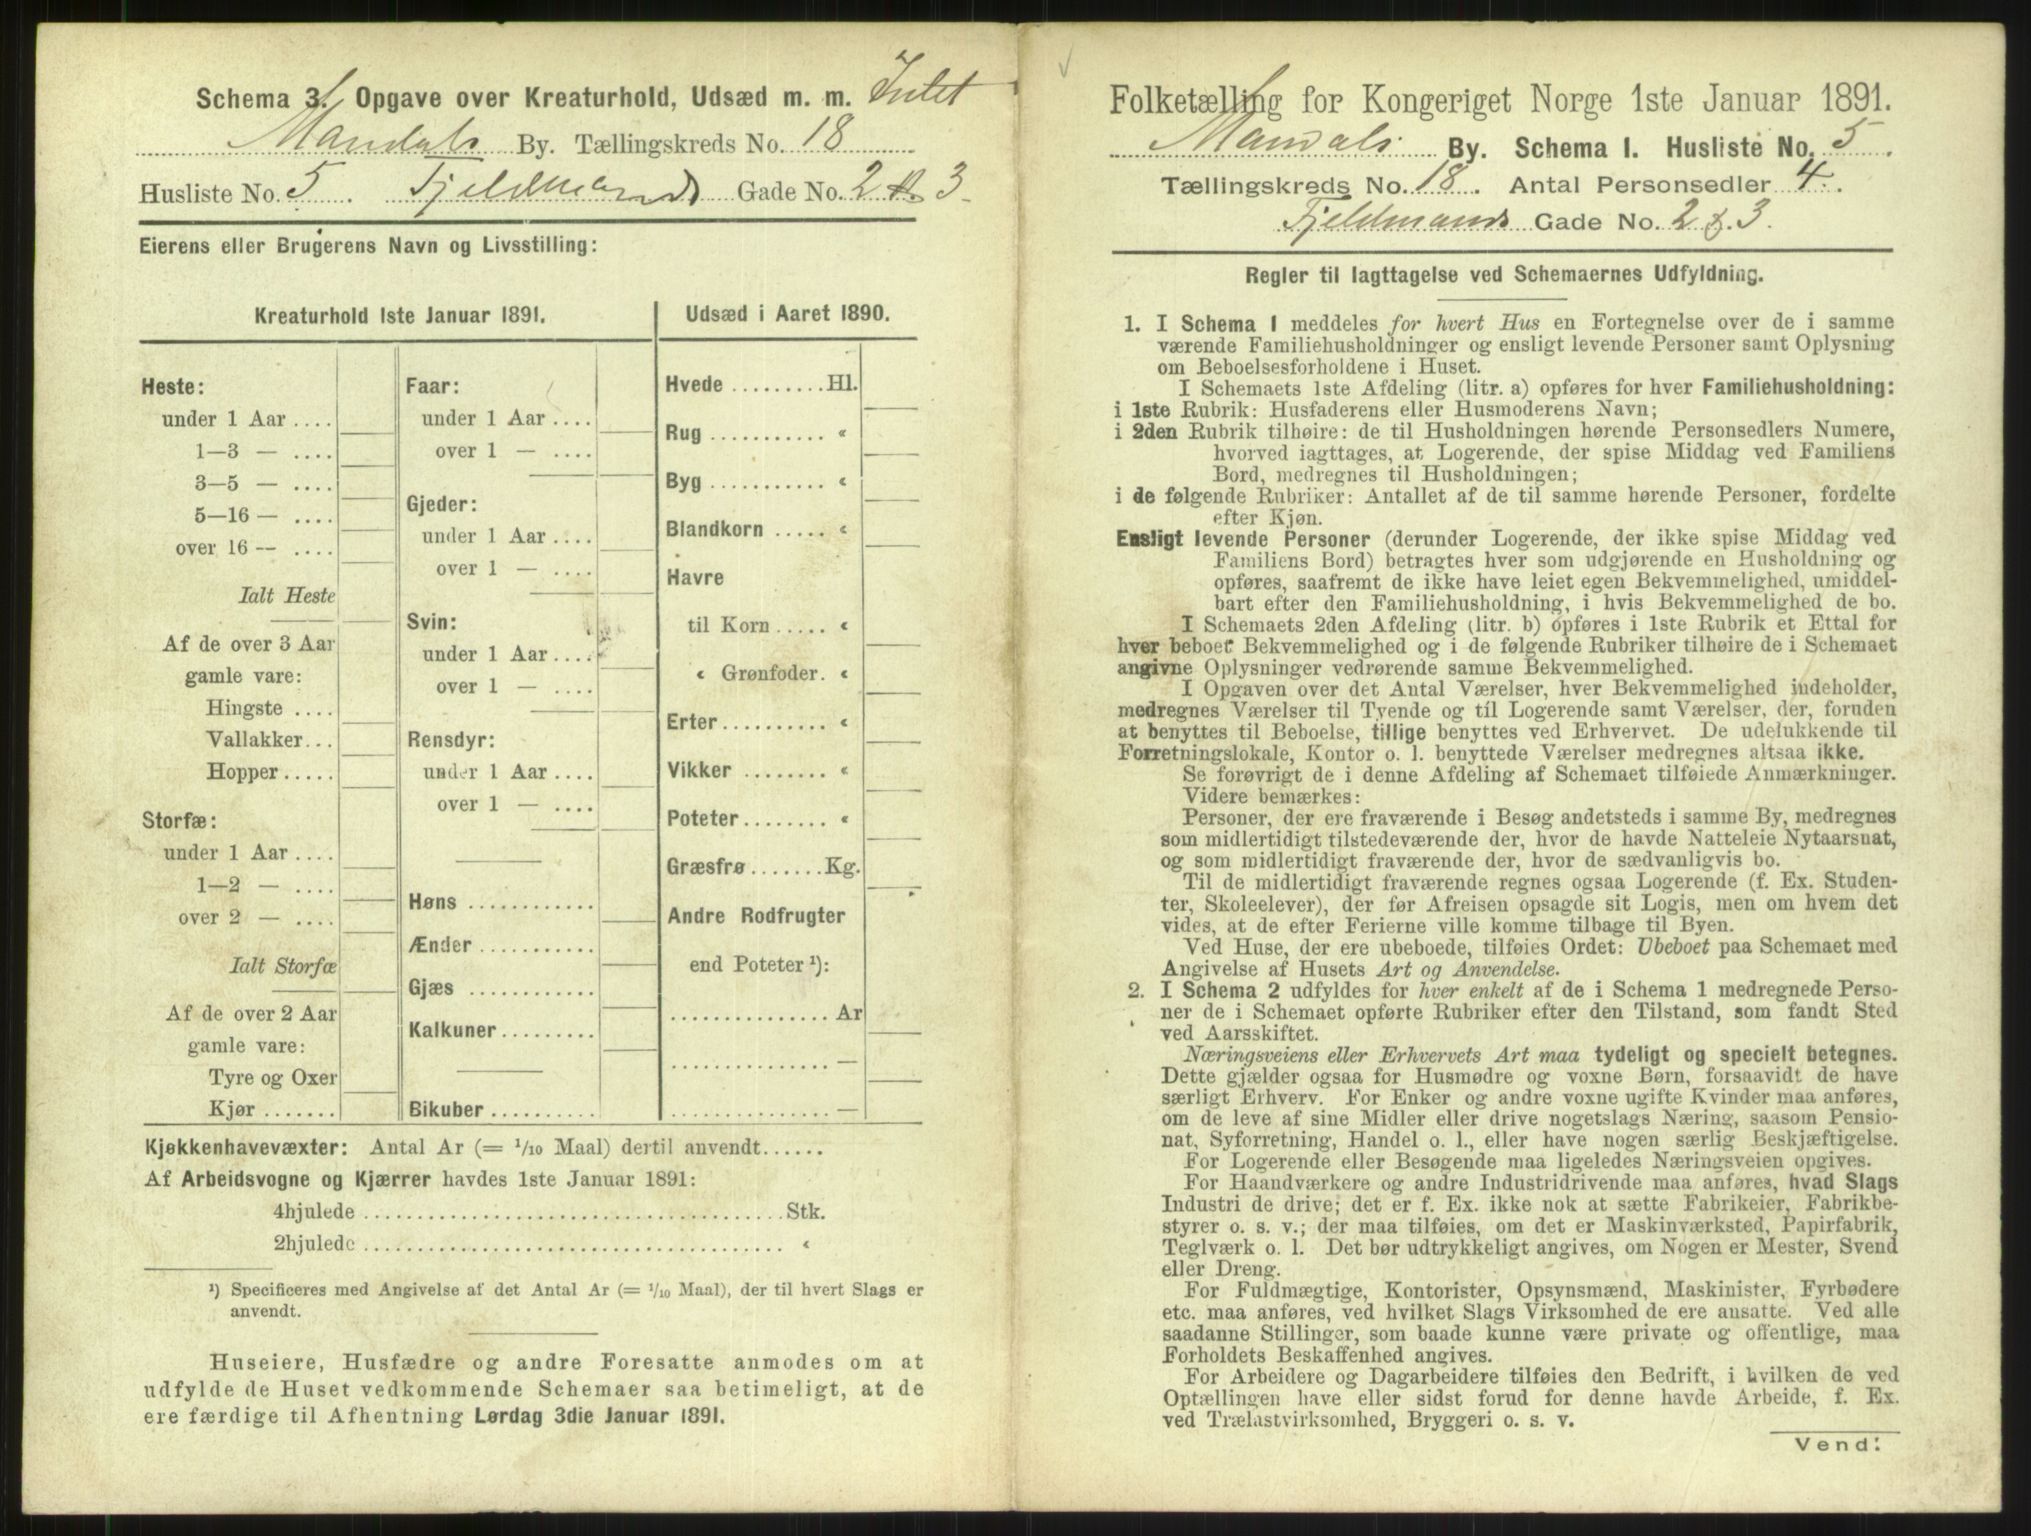 Schema 3. Opgave over Kreaturhold, Udsæd m. m. Intet
Mandals By. Tællingskreds No. 18
Husliste No. 5. Fjeldmands Gade No. 2 3.
Eierens eller Brugerens Navn og Livsstilling:
Kreaturhold 1ste Januar 1891.
Heste:
under 1 Aar ....
1—3 — ....
3—5 — ....
5—16 — ....
over 16 — ....
Ialt Heste
Af de over 3 Aar
gamle vare:
Hingste ....
Vallakker...
Hopper.....
Storfæ:
under 1 Aar ....
1—2 — ....
over 2 — ....
Ialt Storfæ
Af de over 2 Aar
gamle vare:
Tyre og Oxer
Kjør .......
Faar:
under 1 Aar ....
over 1 — ....
Gjeder:
under 1 Aar ....
over 1 — ....
Svin:
under 1 Aar ....
over 1 — ....
Rensdyr:
under 1 Aar ....
over 1 — ....
Høns ............
Ænder ...........
Gjæs ............
Kalkuner.........
Bikuber ..........
Udsæd i Aaret 1890.
Hvede .........Hl.
Rug ........... "
Byg ........... "
Blandkorn ..... "
Havre
til Korn ..... "
" Grønfoder. "
Erter .......... "
Vikker ........ "
Poteter ........ "
Græsfrø .......Kg.
Andre Rodfrugter
end Poteter ¹):
...............Ar
............... —
............... —
Kjøkkenhavevæxter: Antal Ar (= 1/10 Maal) dertil anvendt......
Af Arbeidsvogne og Kjærrer havdes 1ste Januar 1891:
4hjulede ........................................Stk.
2hjulede ........................................ "
¹) Specificeres med Angivelse af det Antal Ar (= 1/10 Maal), der til hvert Slags er
anvendt.
Huseiere, Husfædre og andre Foresatte anmodes om at
udfylde de Huset vedkommende Schemaer saa betimeligt, at de
ere færdige til Afhentning Lørdag 3die Januar 1891.
Folketælling for Kongeriget Norge 1ste Januar 1891.
Mandals By. Schema I. Husliste No. 5.
Tællingskreds No. 18. Antal Personsedler 4.
Fjeldmands Gade No. 2 3.
Regler til Iagttagelse ved Schemaernes Udfyldning.
1. I Schema 1 meddeles for hvert Hus en Fortegnelse over de i samme
værende Familiehusholdninger og ensligt levende Personer samt Oplysning
om Beboelsesforholdene i Huset.
I Schemaets 1ste Afdeling (litr. a) opføres for hver Familiehusholdning:
i 1ste Rubrik: Husfaderens eller Husmoderens Navn;
i 2den Rubrik tilhøire: de til Husholdningen hørende Personsedlers Numere,
hvorved iagttages, at Logerende, der spise Middag ved Familiens
Bord, medregnes til Husholdningen;
i de følgende Rubriker: Antallet af de til samme hørende Personer, fordelte
efter Kjøn.
Ensligt levende Personer (derunder Logerende, der ikke spise Middag ved
Familiens Bord) betragtes hver som udgjørende en Husholdning og
opføres, saafremt de ikke have leiet egen Bekvemmelighed, umiddel-
bart efter den Familiehusholdning, i hvis Bekvemmelighed de bo.
I Schemaets 2den Afdeling (litr. b) opføres i 1ste Rubrik et Ettal for
hver beboet Bekvemmelighed og i de følgende Rubriker tilhøire de i Schemaet
angivne Oplysninger vedrørende samme Bekvemmelighed.
I Opgaven over det Antal Værelser, hver Bekvemmelighed indeholder,
medregnes Værelser til Tyende og til Logerende samt Værelser, der, foruden
at benyttes til Beboelse, tillige benyttes ved Erhvervet. De udelukkende til
Forretningslokale, Kontor o. l. benyttede Værelser medregnes altsaa ikke.
Se forøvrigt de i denne Afdeling af Schemaet tilføiede Anmærkninger.
Videre bemærkes:
Personer, der ere fraværende i Besøg andetsteds i samme By, medregnes
som midlertidigt tilstedeværende der, hvor de havde Natteleie Nytaarsnat,
og som midlertidigt fraværende der, hvor de sædvanligvis bo.
Til de midlertidigt fraværende regnes ogsaa Logerende (f. Ex. Studen-
ter, Skoleelever), der før Afreisen opsagde sit Logis, men om hvem det
vides, at de efter Ferierne ville komme tilbage til Byen.
Ved Huse, der ere ubeboede, tilføies Ordet: Ubeboet paa Schemaet med
Angivelse af Husets Art og Anvendelse.
2. I Schema 2 udfyldes for hver enkelt af de i Schema 1 medregnede Perso-
ner de i Schemaet opførte Rubriker efter den Tilstand, som fandt Sted
ved Aarsskiftet.
Næringsveiens eller Erhvervets Art maa tydeligt og specielt betegnes.
Dette gjælder ogsaa for Husmødre og voxne Børn, forsaavidt de have
særligt Erhverv. For Enker og andre voxne ugifte Kvinder maa anføres,
om de leve af sine Midler eller drive nogetslags Næring, saasom Pensio-
nat, Syforretning, Handel o. l., eller have nogen særlig Beskjæftigelse.
For Logerende eller Besøgende maa ligeledes Næringsveien opgives.
For Haandværkere og andre Industridrivende maa anføres, hvad Slags
Industri de drive; det er f. Ex. ikke nok at sætte Fabrikeier, Fabrikbe-
styrer o. s. v.; der maa tilføies, om det er Maskinværksted, Papirfabrik,
Teglværk o. l. Det bør udtrykkeligt angives, om Nogen er Mester, Svend
eller Dreng.
For Fuldmægtige, Kontorister, Opsynsmænd, Maskinister, Fyrbødere
etc. maa anføres, ved hvilket Slags Virksomhed de ere ansatte. Ved alle
saadanne Stillinger, som baade kunne være private og offentlige, maa
Forholdets Beskaffenhed angives.
For Arbeidere og Dagarbeidere tilføies den Bedrift, i hvilken de ved
Optællingen have eller sidst forud for denne havde Arbeide, f. Ex.
ved Trælastvirksomhed, Bryggeri o. s. v.
Vend: